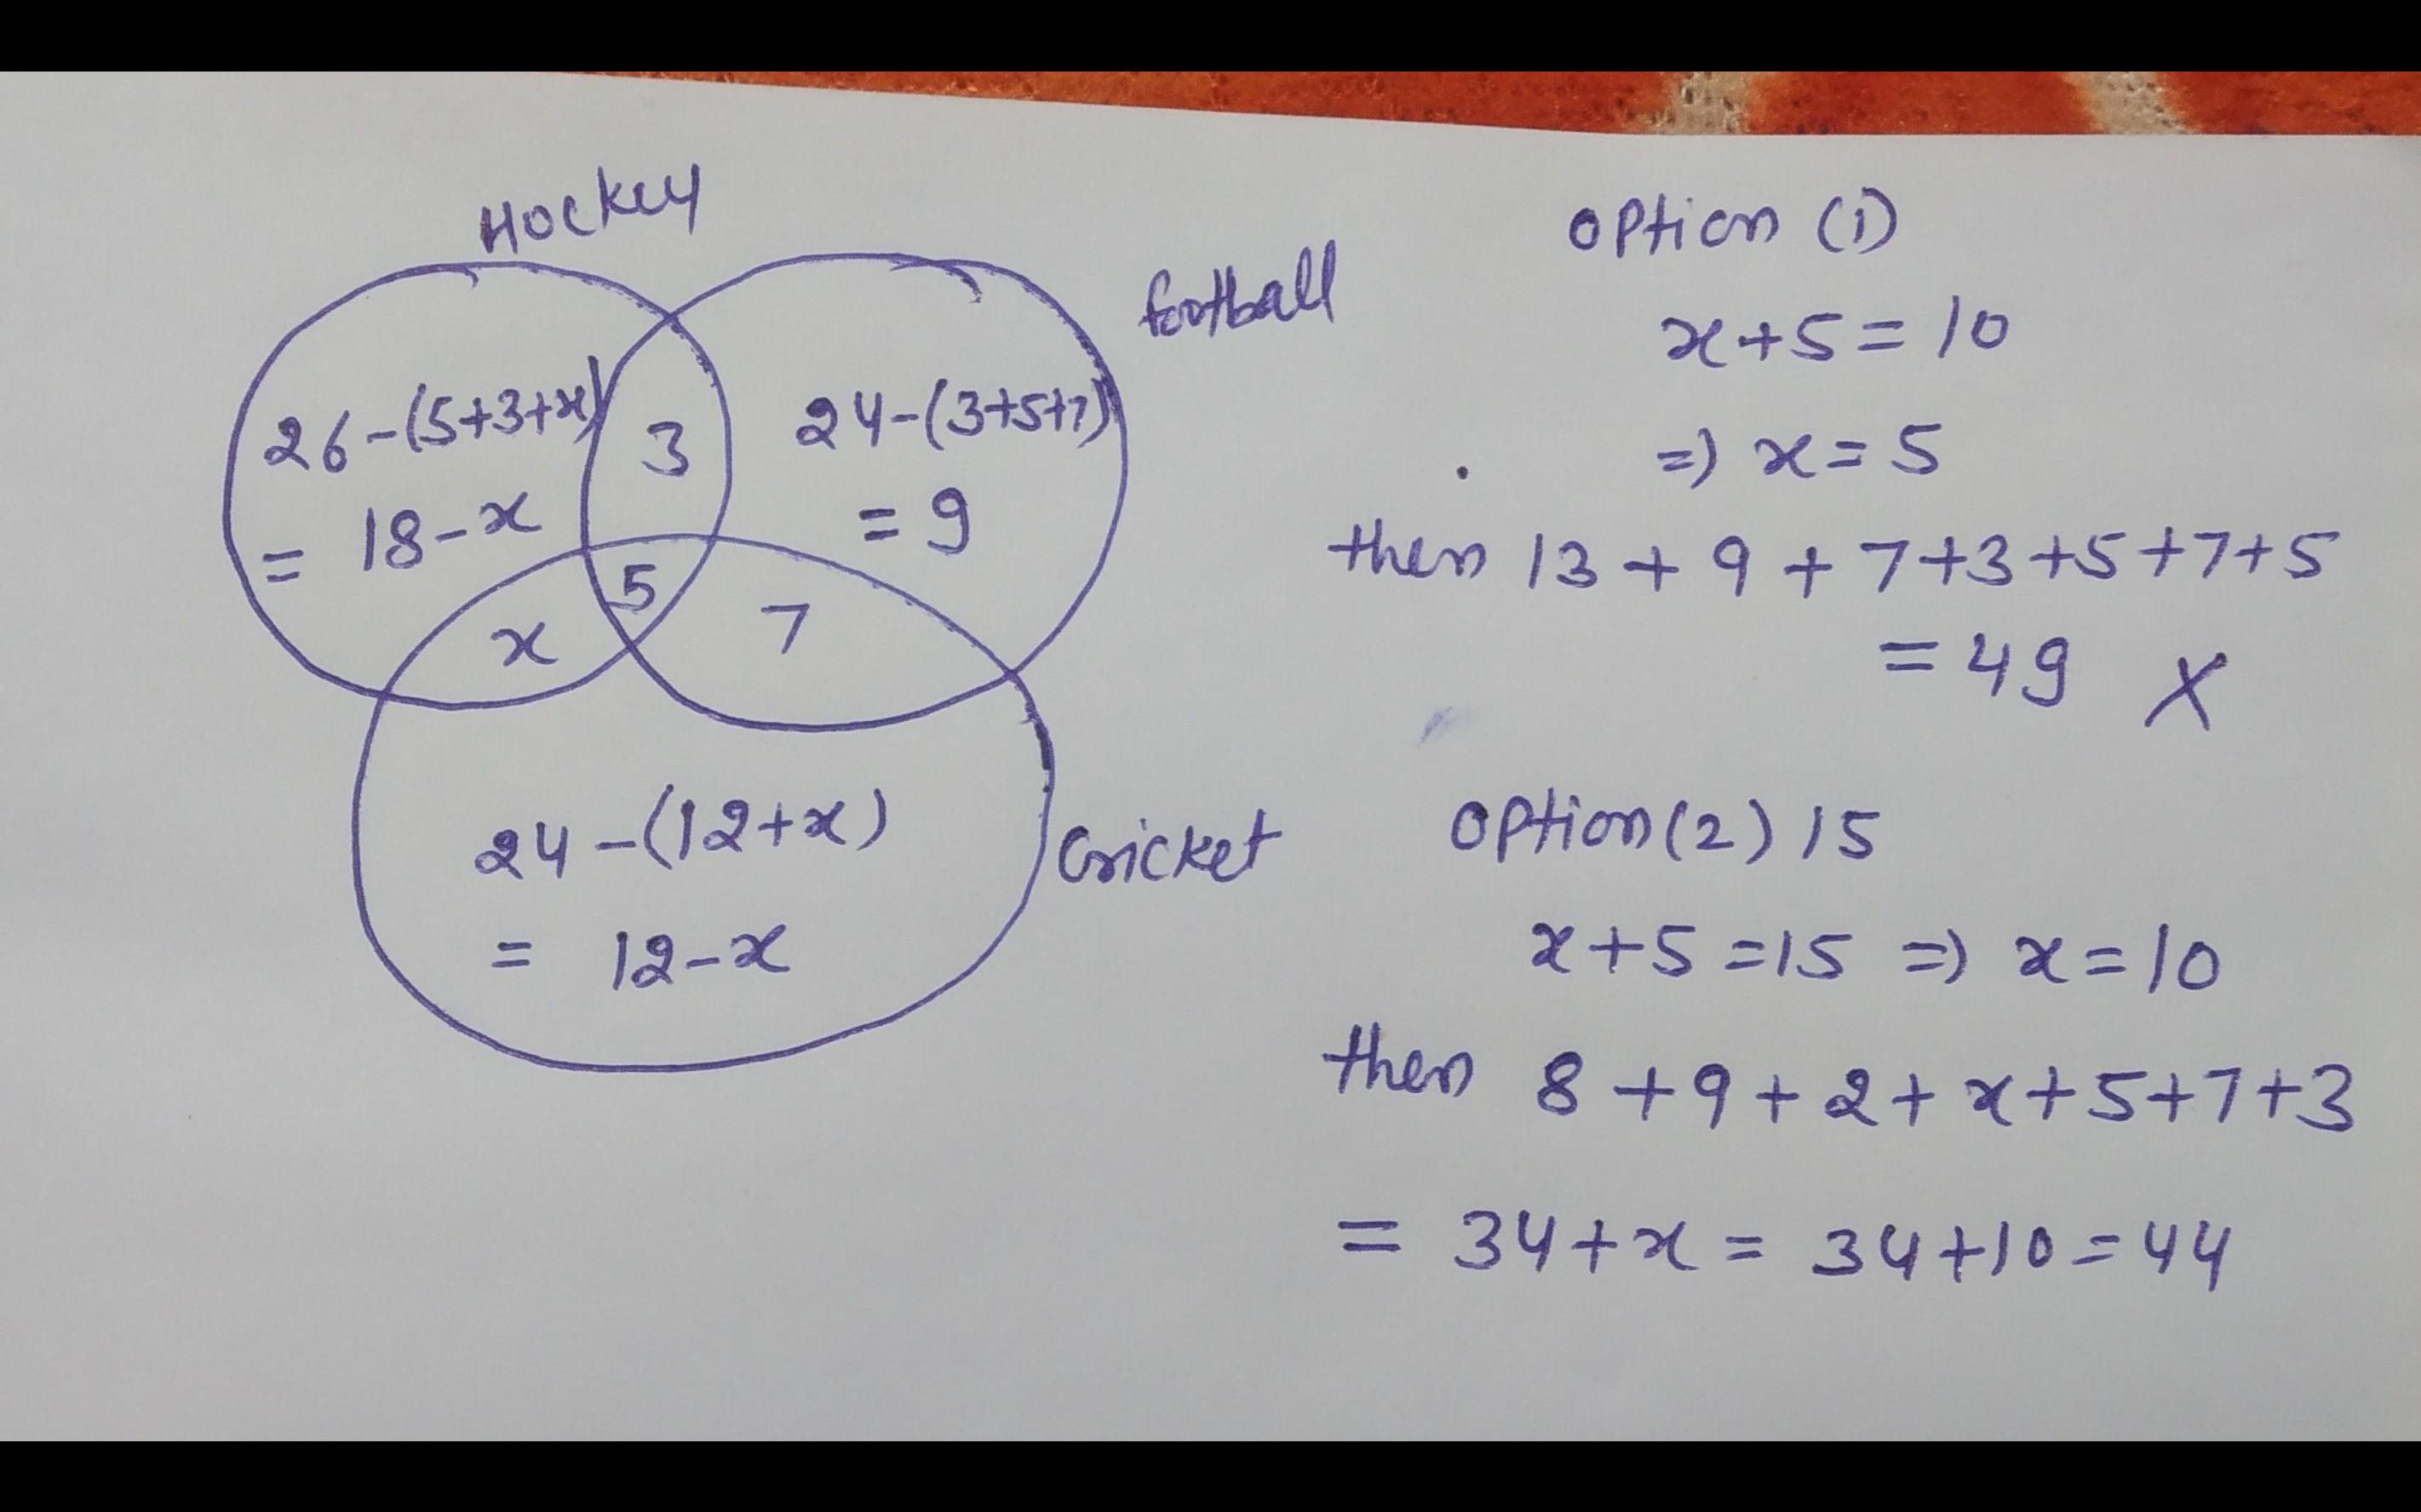 Hockey
football
26-(5+3+x)
= 18-x
3
24-(3+5+7)
= 9
5
x
7
24-(12+x)
= 12-x
Cricket
Option (1)
x+5=10
=) x=5
then 13+9+7+3+5+7+5
=49 X
Option(2) 15
x+5=15 =) x=10
then 8+9+2+x+5+7+3
= 34+x = 34+10=44